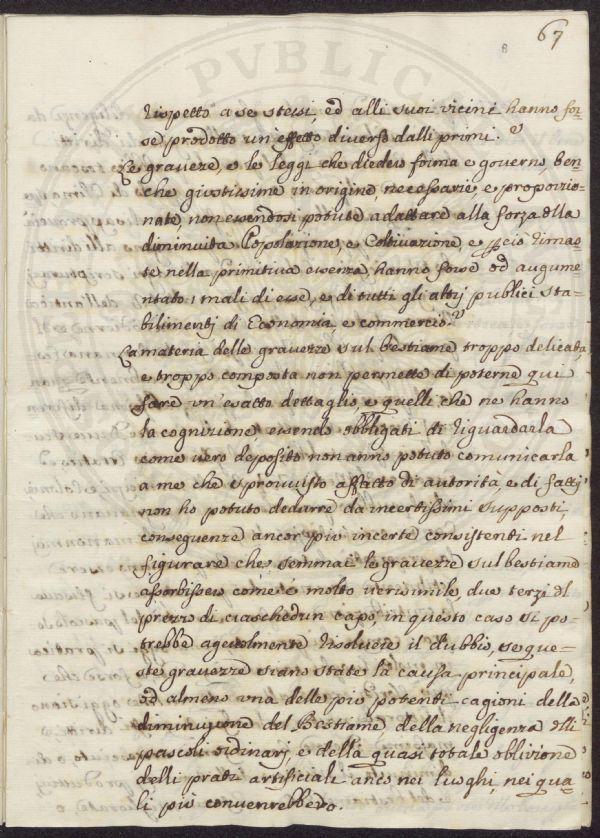 67
rispetto a se stessi, ed alli suoi vicini hanno for-
se prodotto un'effetto diverso dalli primi.
Le gravezze, e le leggi che diedero forma e governo, ben-
che giustissime in origine, necessarie, e proporzio-
nate, non essendosi potute adattare alla forza della
diminuita Popolazione, e Coltivazione, e perciò rimas-
te nella primitiva essenza, hanno forse od augume-
ntato i mali di esse, e di tutti gli altrj publici sta-
bilimentj di Economia, e commercio.
La materia delle gravezze sul bestiame troppo delicata,
e troppo composta non permette di poterne qui
fare un'esatto dettaglio, e quelli che ne hanno
la cognizione, essendo obbligati di riguardarla
come vero deposito non anno potuto comunicarla
a me che sprovvisto affatto di autorità, e di fattj
non ho potuto dedurre da incertissimi supposti,
conseguenze ancor più incerte consistenti nel
figurare che, semmai le gravezze sul bestiame
assorbissero come è molto verisimile, due terzi del
prezzo di ciaschedun capo, in questo caso si po-
trebbe agevolmente risolvere il dubbio, se que-
ste gravezze siano state la causa principale,
od almeno una delle più potenti cagioni della
diminuzione del Bestiame, della negligenza delli
pascoli ordinarj, e della quasi totale oblivione
delli prati artificiali anco nei luoghi nei qua-
li più convenrebbero.
PVBLICA